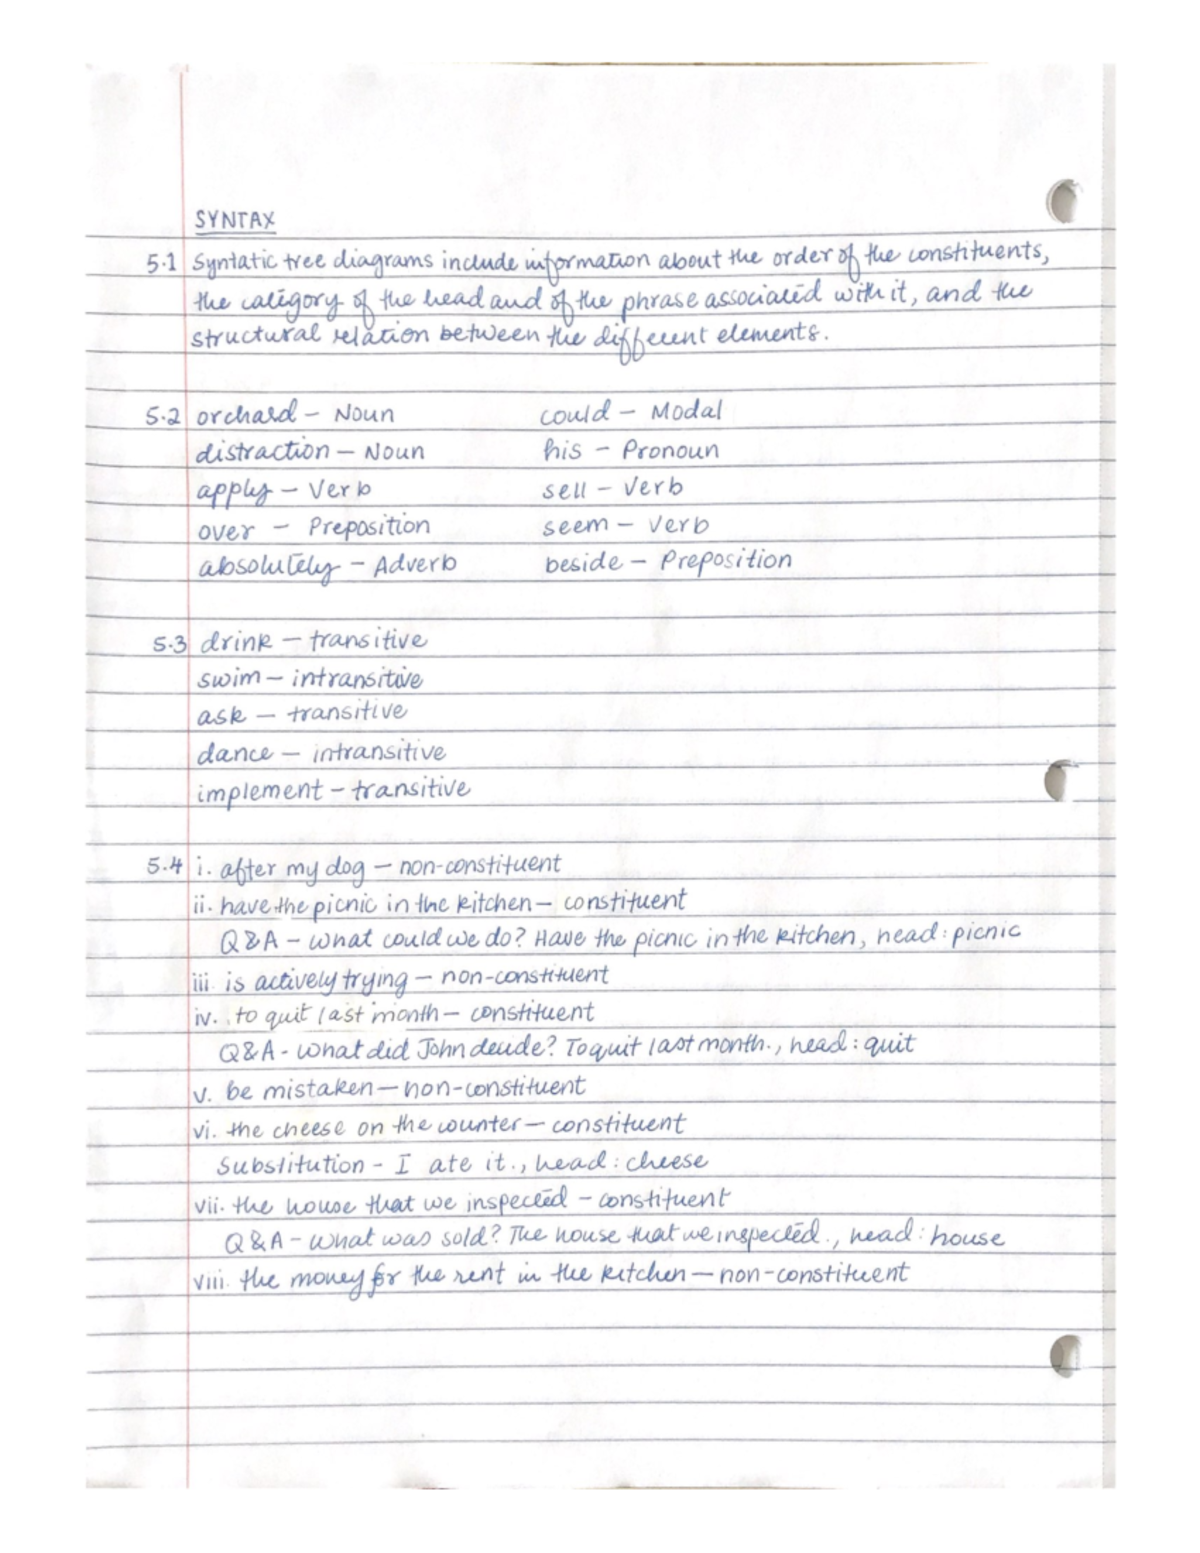 SYNTAX
5.1 Syntatic tree diagrams include information about the order of the constituents,
the category of the head and of the phrase associated with it, and the
structural relation between the different elements.
5.2 orchard – Noun could – Modal
distraction – Noun his – Pronoun
apply – Verb sell – Verb
over – Preposition seem – Verb
absolutely – Adverb beside – Preposition
5.3 drink – transitive
swim – intransitive
ask – transitive
dance – intransitive
implement – transitive
5.4 i. after my dog – non-constituent
ii. have the picnic in the kitchen – constituent
Q&A – What could we do? Have the picnic in the kitchen, head: picnic
iii. is actively trying – non-constituent
iv. to quit last month – constituent
Q&A - What did John decide? To quit last month., head: quit
v. be mistaken – non-constituent
vi. the cheese on the counter – constituent
Substitution - I ate it., head: cheese
vii. the house that we inspected – constituent
Q&A – What was sold? The house that we inspected., head: house
viii. the money for the rent in the kitchen – non-constituent